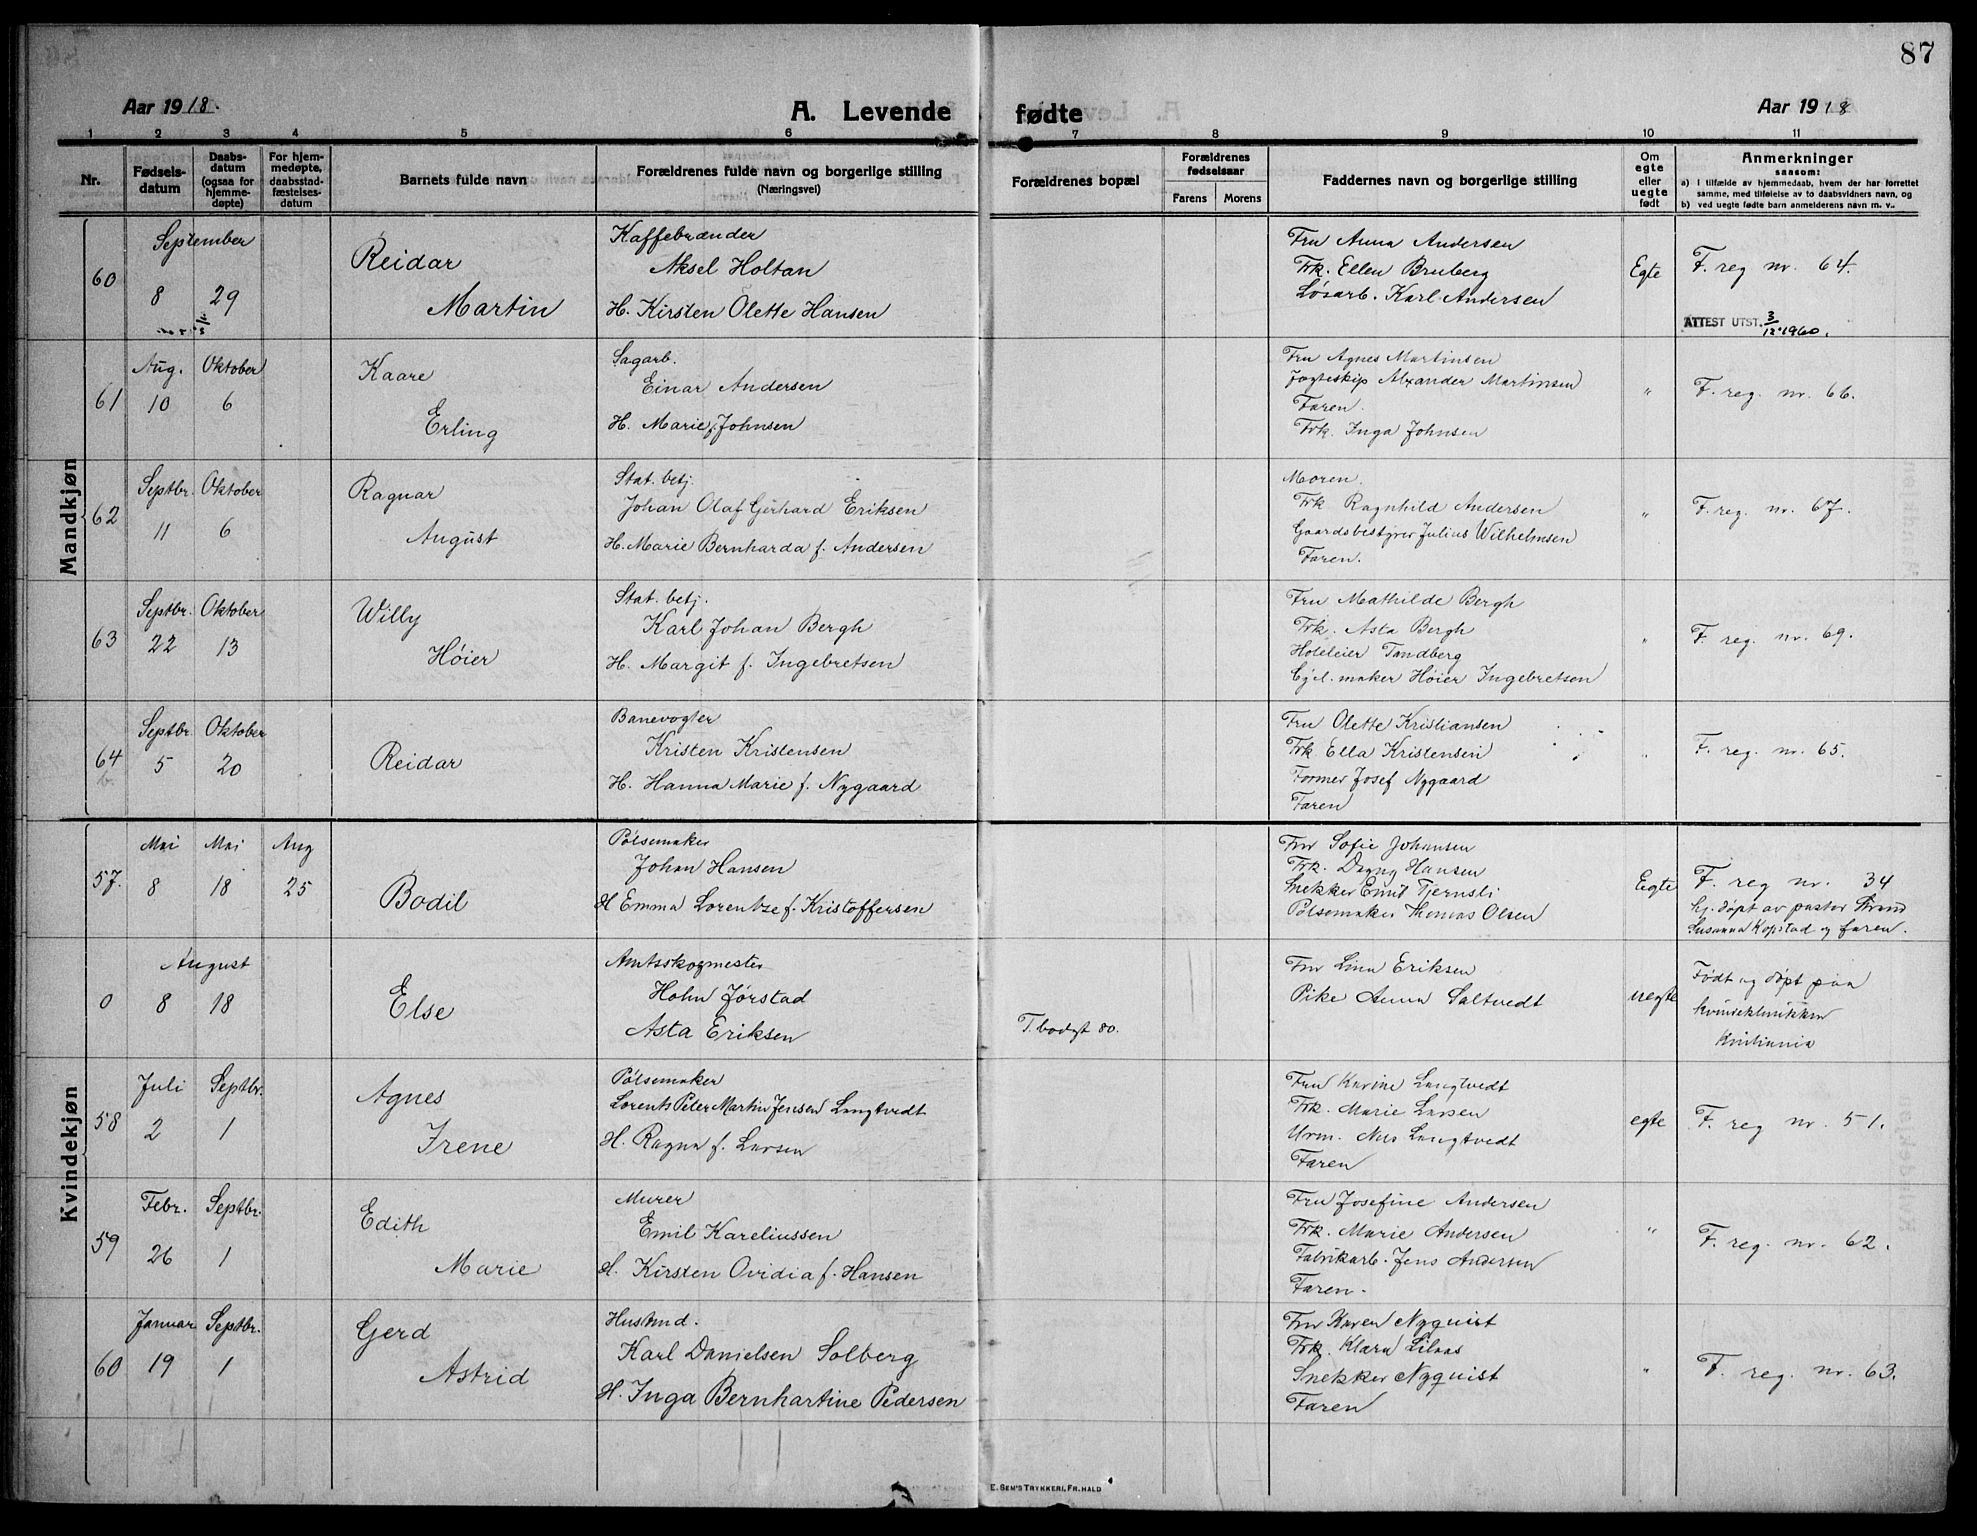 87
Aar 1918. A. Levende fødte Aar 1918
1 2 3 4 5 6 7 8 9 10 11
Nr. | Fødsels-datum | Daabs-datum (ogsaa for hjemme-døpte) | For hjem-medøpte, daabsstad-fæstelses-datum | Barnets fulde navn | Forældrenes fulde navn og borgerlige stilling (Næringsvei) | Forældrenes bopæl | Forældrenes fødselsaar Farens Morens | Faddernes navn og borgerlige stilling | Om egte eller uegte født | Anmerkninger saasom:
a) I tilfælde av hjemmedaab, hvem der har forrettet samme, med tilføielse av to daabsvidners navn, og
b) ved uegte fødte barn anmelderens navn m. v..
Mandkjøn
60
September
8 29
Reidar
Martin
Kaffebrænder
Aksel Holtan
H. Kirsten Olette Hansen
Fru Anna Andersen
Frk. Ellen Bruberg
Løsarb. Karl Andersen
Egte
F. reg nr. 64.
ATTEST UTST. 3/12 1960.
61
Aug. Oktober
10 6
Kaare
Erling
Sagarb.
Einar Andersen
H. Marie f. Johnsen
Fru Agnes Martinsen
Jagteskip Alxander Martinsen
Faren.
Frk. Inga Johnsen
"
F. reg. nr. 66.
62
Septbr. Oktober
11 6
Ragnar
August
Stat. betj.
Johan Olaf Gerhard Eriksen
H. Marie Bernharda f. Andersen
Moren.
Frk Ragnhild Andersen
Gaardsbestyrer Julius Wilhelmsen
Faren.
"
F. reg. nr. 67.
63
Septbr. Oktober
22 13
Willy
Høier
Stat. betj.
Karl Johan Bergh
H. Margit f. Ingebretsen
Fru Mathilde Bergh
Frk. Asta Bergh
Hoteleier Tandberg
Cycl. maker Høier Ingebretsen
"
F. reg. nr. 69.
64
b.
Septbr. Oktober
5 20
Reidar
Banevogter
Kristen Kristensen
H. Hanna Marie f. Nygaard
Fru Olette Kristiansen
Frk Ella Kristensen
Former Josef Nygaard
Faren
"
F. reg. nr. 65.
Kvindekjøn
57.
Mai Mai Aug
8 18 25
Bodil
Pølsemaker
Johan Hansen
H Emma Lorentze f. Kristoffersen
Fru Sofie Johansen
Frk. Dagny Hansen
Snekker Emil Tjernsli
Pølsemaker Thomas Olsen
Egte
F. reg nr. 34
hj. døpt av pastor Strand
Susanna Kopstad og faren.
0
August
8 18
Else
Amtsskogmester
Hohn Jørstad
Asta Eriksen
T. bodgt 80.
Fru Lina Eriksen
Pike Anna Saltvedt
uegte
Født og døpt paa
kvindeklinikken
Kristiania
58
Juli Septbr.
2 1
Agnes
Irene
Pølsemaker
Lorents Peter Martin Jensen Langtvedt
H. Ragna f. Larsen
Fru Karine Langtvedt
Frk. Marie Larsen
Urm. Nils Langtvedt
Faren
egte
F. reg nr. 51.
59
Febr. Septbr.
26 1
Edith
Marie
Murer
Emil Kareliussen
H. Kirsten Ovidia f. Hansen
Fru Josefine Andersen
Frk. Marie Andersen
Fabrikarb. Jens Andersen
Faren.
"
F. reg. nr. 62.
60
Januar Septbr.
19 1
Gerd
Astrid
Husmd.
Karl Danielsen Solberg
H. Inga Bernhartine Pedersen
Fru Karen Nyquist
Frk. Klara Lilaas
Snekker Nyquist
Faren
"
F. reg. nr. 63.
E. SEM'S TRYKKERI, FR.HALD